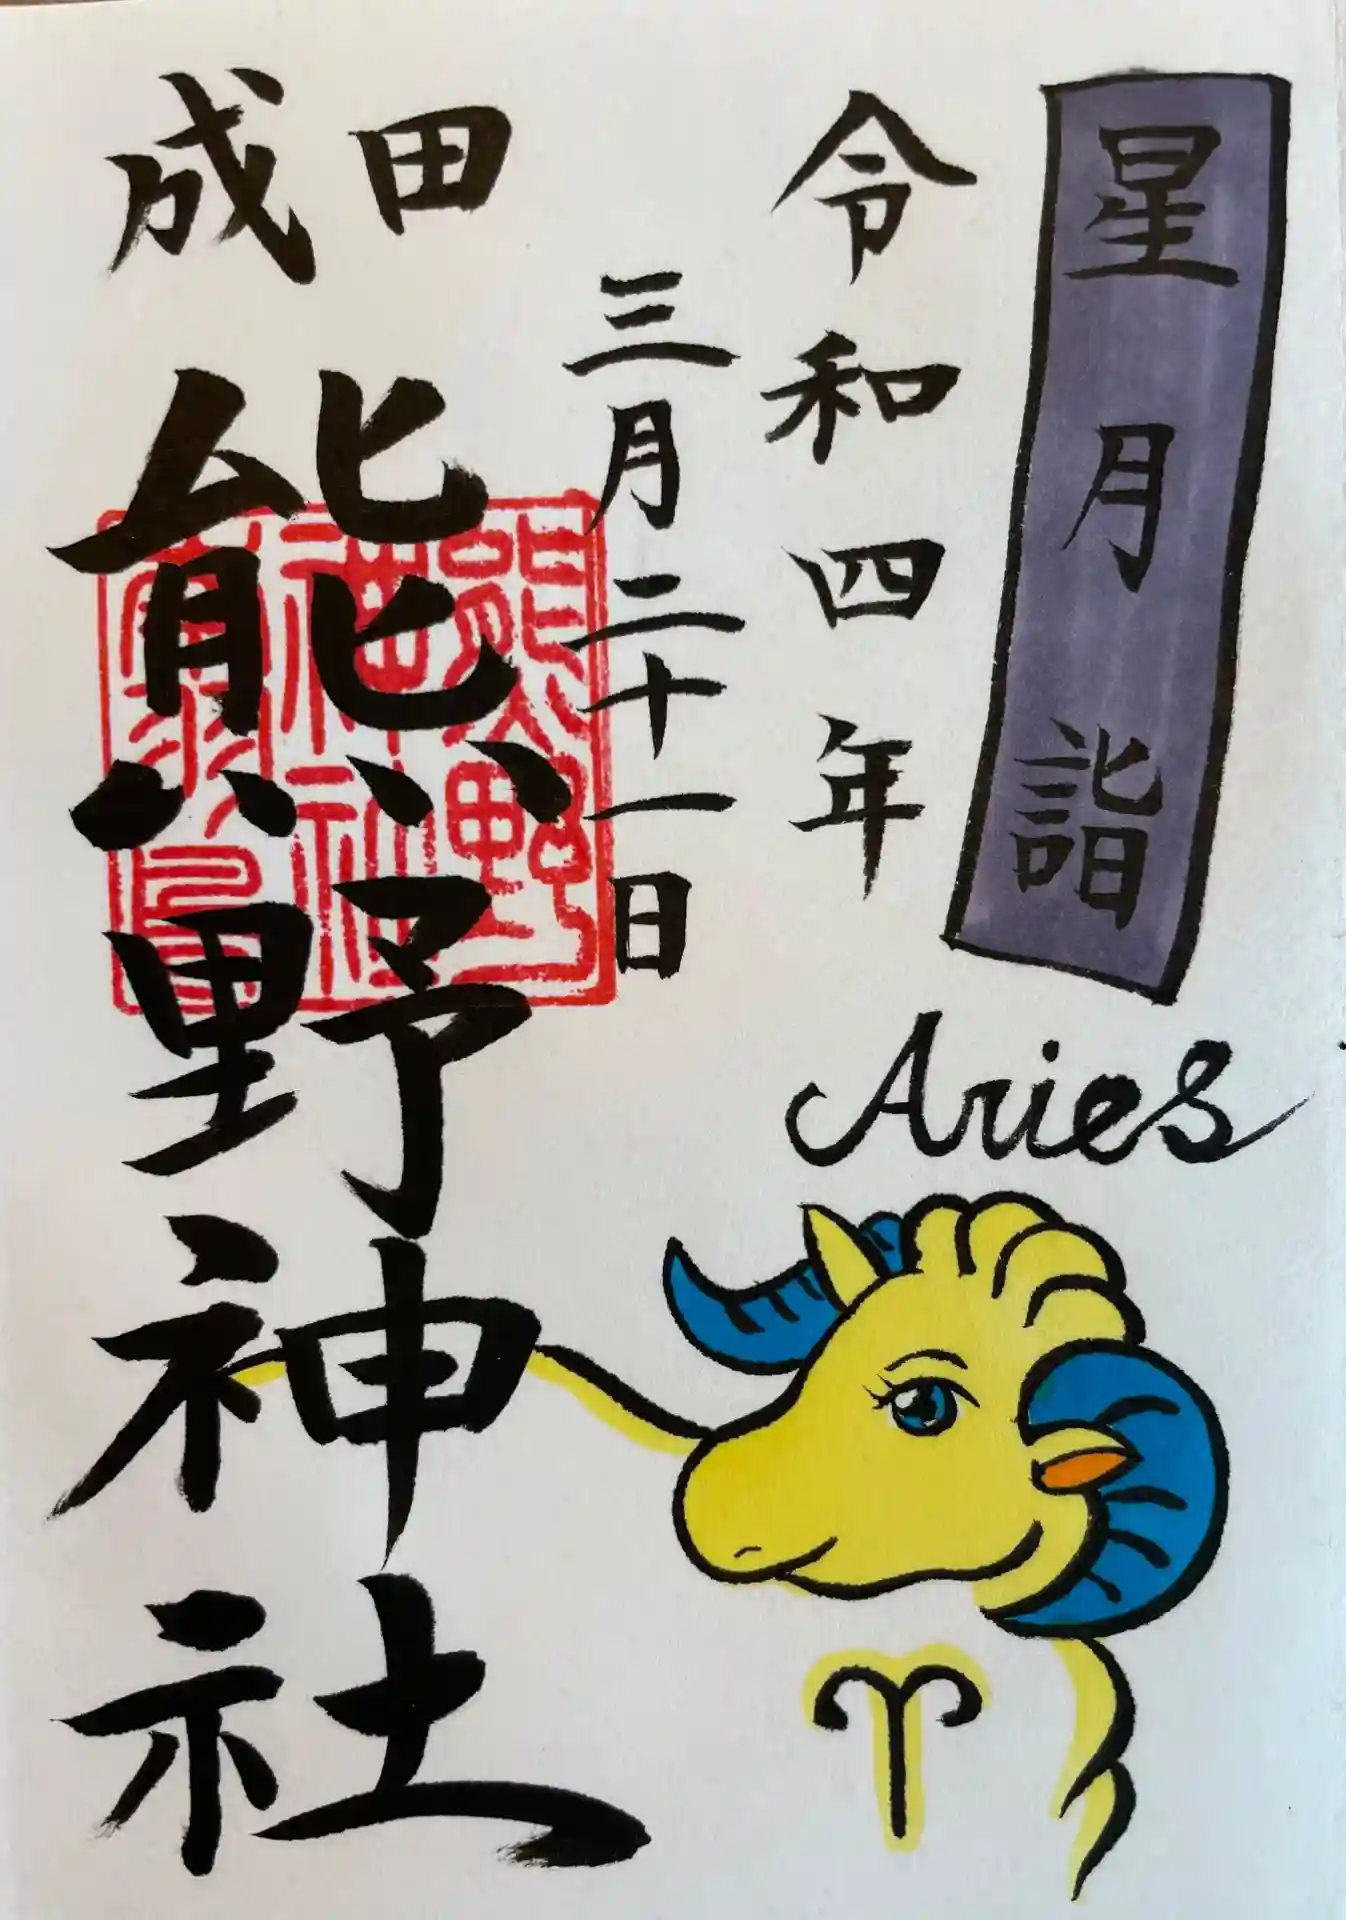 星月詣
令和四年
三月二十一日
成田
熊野神社
熊野
神社
Aries